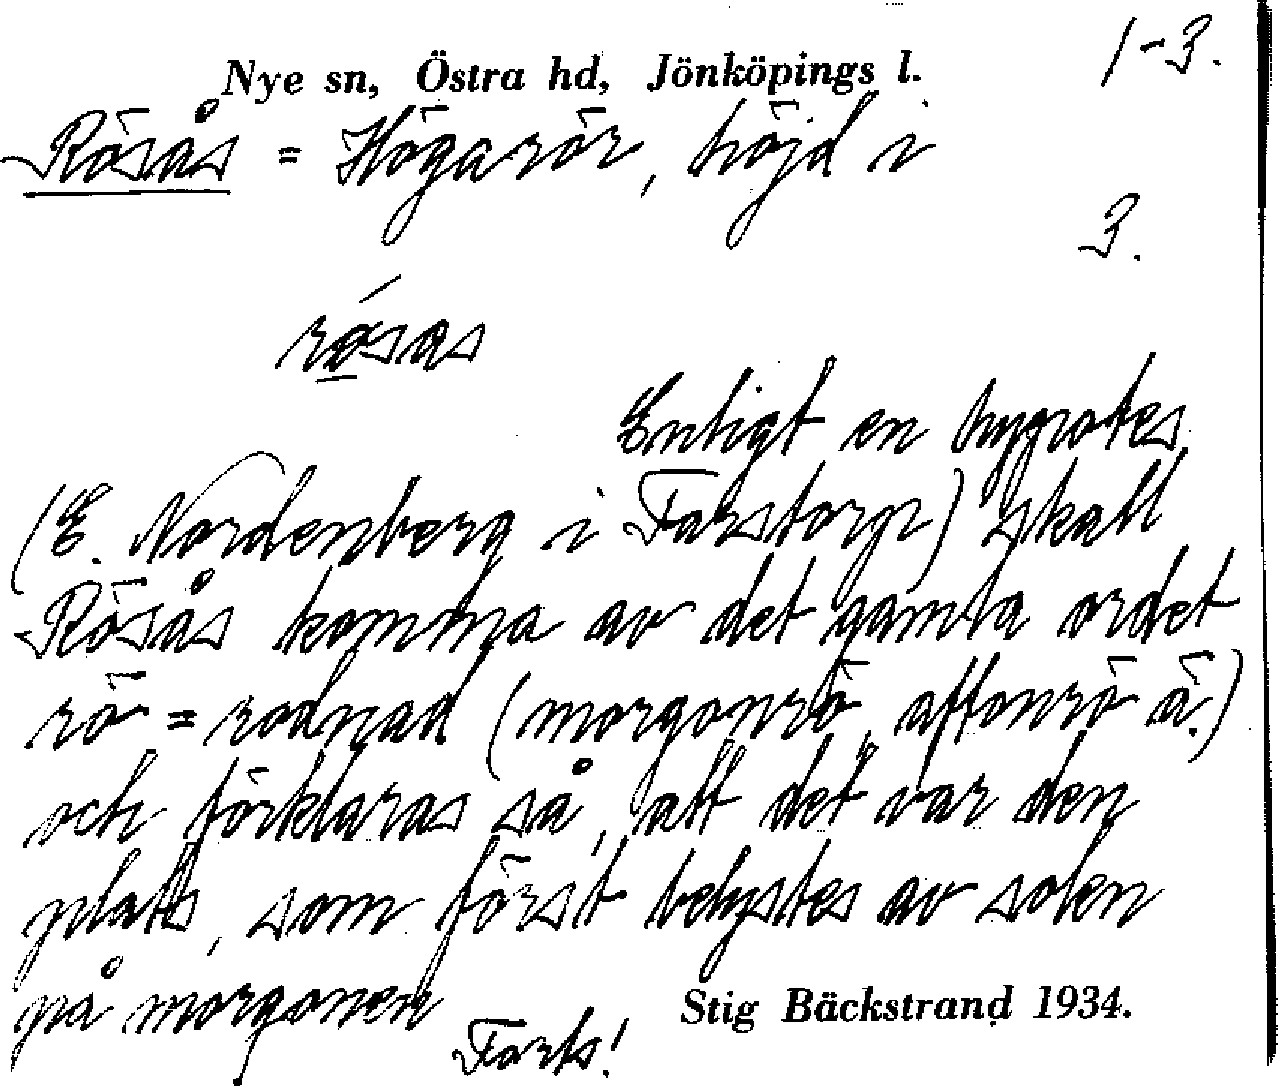 1-3.
Nye sn, Östra hd, Jönköpings l.
Rösås = Högarör, höjd i
3.
rósas
Enligt en hypotes
(E. Nordenberg i Farstorp) skall
Rösås komma av det gamla ordet
rö = rodnad (morgonrö, aftonrö ä.)
och förklaras så, att det var den
plats, som först belystes av solen
på morgonen
Stig Bäckstrand 1934.
Forts!